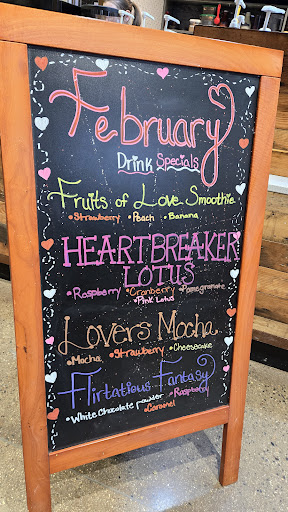 February
Drink Specials
Fruits of Love Smoothie
•Strawberry •Peach •Banana
HEARTBREAKER
LOTUS
•Raspberry •Cranberry •Pomegranate
•Pink Lotus
Lovers Mocha
•Mocha •Strawberry •Cheesecake
Flirtatious Fantasy
•White Chocolate powder •Raspberry
•Caramel